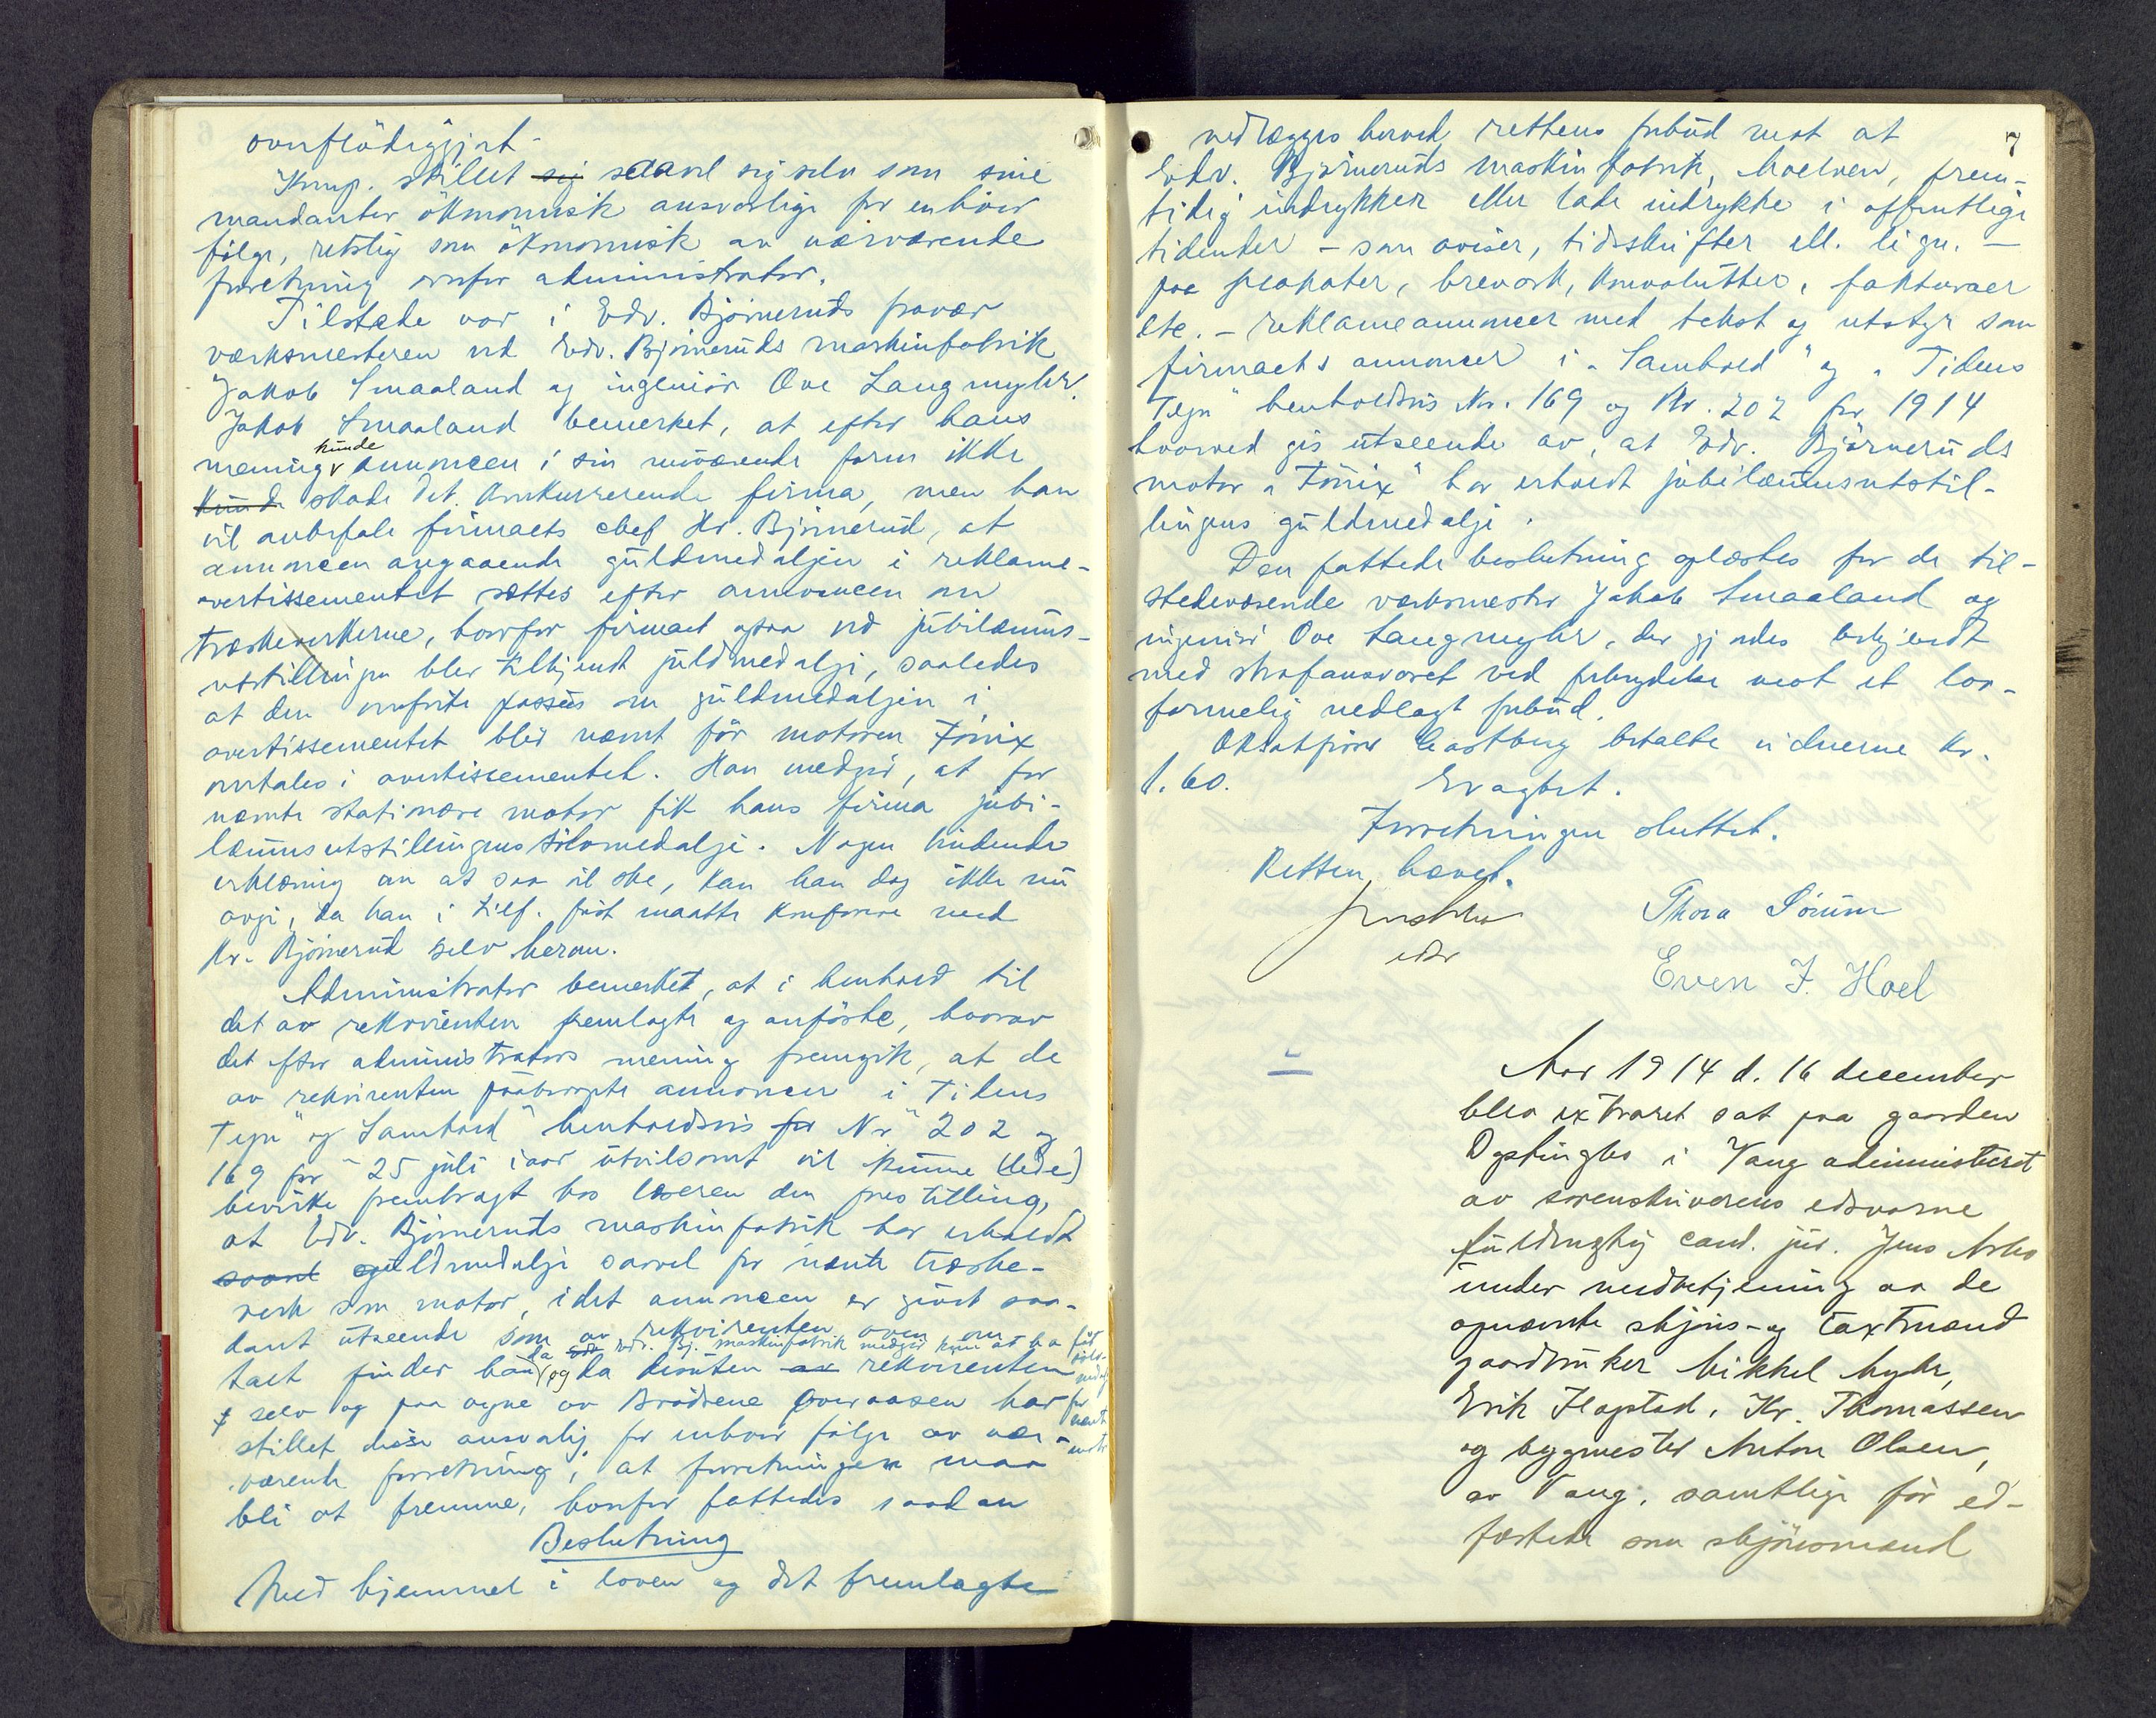 overflödiggjort.
Komp. stillet sig saavel sig selv som sine
mandanter ökonomisk ansvarlige for enhver
følge, retslig som ökonomisk av nærværende
forretning overfor administrator.
Tilstede var i Edv. Bjørneruds fravær
verksmesteren ved Edv. Bjørneruds maskinfabrik
Jakob Smaaland og ingeniør Ove Langmyhr.
Jakob Smaaland bemerket, at efter hans
mening kunde annoncen i sin nuværende form ikke
kunde skade det konkurrerende firma, men han
vil anbefale firmaets chef Hr. Bjørnerud, at
annoncen angaaende guldmedaljen i reklame-
avertissementet sættes efter annoncen om
træskeverkerne, hvorfor firmaet ogsaa ved jubilæums-
utstillingen blev tilkjendt guldmedalje, saaledes
at den anførte passus om guldmedaljen i
avertissementet blir nævnt før motoren Fönix
omtales i avertissementet. Han medgir, at for
nævnte stationære motor fik hans firma jubi-
læumsutstillingens sölvmedalje. Nogen bindende
erklæring om at saa vil ske, kan han dog ikke nu
avgi, da han i tilf. först maatte konferere med
Hr. Bjørnerud selv herom.
Administrator bemerket, at i henhold til
det av rekvirenten fremlagte og anførte, hvorav
det efter administrators mening fremgik, at de
av rekvirenten paaberopte annoncer i "Tidens
Tegn" og "Samhold" henholdsvis for Nr. 202 og
169 for 25 juli iaar utvilsomt vil kunne (lede)
bevirke frembragt hos læseren den forestilling,
at Edv. Bjørneruds maskinfabrik har erholdt
saavel guldmedalje saavel for nævnte træske-
verk som motor, idet annoncen er givet saa-
dant utseende som av rekvirenten oven om
talt finder han da Edv. Bj. maskinfabrik medgir kun at ha faat sølv-medalj for nævnte motor og da desuten av rekvirenten
selv og paa egne av Brødrene Overaasen har
stillet disse ansvarlig for enhver følge av nær-
værende forretning, at forretningen maa
bli at fremme, hvorfor fattedes saadan
Beslutning
Med hjemmel i loven og det fremlagte
7
nedlægges herved rettens forbud mot at
Edv. Bjørneruds maskinfabrik, Moelven, frem-
tidig indrykker eller lade indrykke i offentlige
tidender – som aviser, tidsskrifter ell. lign. –
paa plakater, brevark, konvolutter, fakturaer
etc. – reklameannoncer med tekst og utstyr som
firmaets annoncer i "Samhold" og "Tidens
Tegn" henholdsvis Nr. 169 og Nr. 202 for 1914
hvorved gis utseende av, at Edv. Bjørneruds
motor "Fönix" har erholdt jubilæumsutstil-
lingens guldmedalje.
Den fattede beslutning oplæstes for de til-
stedeværende verksmester Jakob Smaaland og
ingeniør Ove Langmyhr, der gjordes bekjendt
med strafansvaret ved forbrydelse mot et lov-
formelig nedlagt forbud.
Oksatfører Castberg betalte vidnerne kr.
1.60. Evagtet.
Forretningen sluttet.
Retten hævet.
Thora Sörum
edsv
Even J. Hoel
Aar 1914 d. 16 december
blev extraret sat paa gaarden
Dystingbo i Vang administrert
av sorenskriverens edsvorne
fuldmægtig cand. jur. Jens Arbo
under medbetjening av de
opnævnte skjøns- og taxtmænd
gaardbruker Mikkel Myhr,
Erik Flagstad, Kr. Thomassen
og bygmester Anton Olsen,
av Vang, samtlige før ed-
fæstede som skjønsmænd